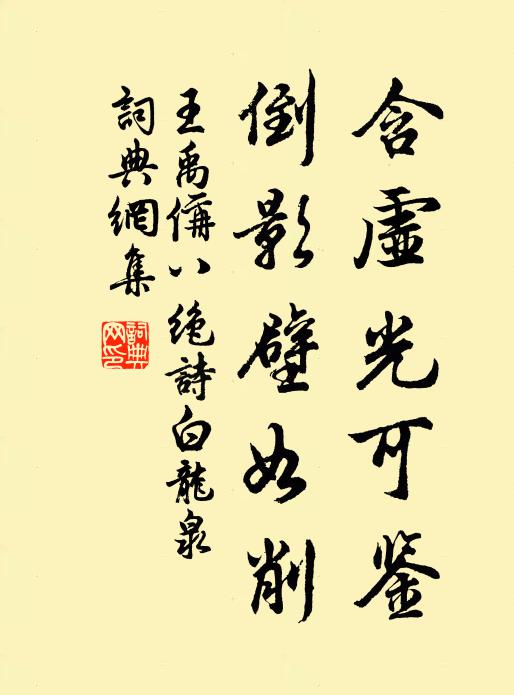 含虛光可鑒
倒影壁如削
王禹偁八絕詩白龍泉
詞典網集
詞典
网印